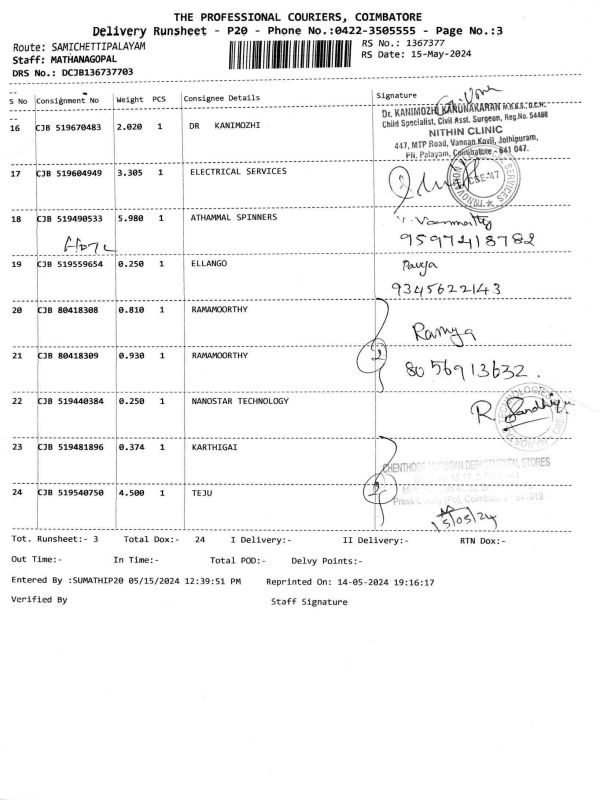 THE PROFESSIONAL COURIERS, COIMBATORE
Delivery Runsheet - P20 - Phone No.:0422-3505555 - Page No.:3
Route: SAMICHETTIPALAYAM
RS No.: 1367377
Staff: MATHANAGOPAL
RS Date: 15-May-2024
DRS No.: DCJB136737703
S No Consignment No Weight PCS Consignee Details Signature
16 CJB 519670483 2.020 1 DR KANIMOZHI
Dr. KANIMOZHI KARUNAKARAN M.B.B.S., D.C.H.
Child Specialist, Civil Asst. Surgeon, Reg.No. 54480
NITHIN CLINIC
447, MTP Road, Vannan Kovil, Jothipuram,
PN. Palayam, Coimbatore - 641 047.
17 CJB 519604949 3.305 1 ELECTRICAL SERVICES
18 CJB 519490533 5.980 1 ATHAMMAL SPINNERS
9597418782
19 CJB 519559654 0.250 1 ELLANGO
Pavya
9345622143
20 CJB 80418308 0.810 1 RAMAMOORTHY
Ramya
21 CJB 80418309 0.930 1 RAMAMOORTHY
2
8056913632.
22 CJB 519440384 0.250 1 NANOSTAR TECHNOLOGY
R. Sandhiya
23 CJB 519481896 0.374 1 KARTHIGAI
CHENTHOOR MURUGAN DEPARTMENTAL STORES
24 CJB 519540750 4.500 1 TEJU
2
Coimbatore - 641019
15/05/24
Tot. Runsheet:- 3 Total Dox:- 24 I Delivery:- II Delivery:- RTN Dox:-
Out Time:- In Time:- Total POD:- Delvy Points:-
Entered By :SUMATHIP20 05/15/2024 12:39:51 PM Reprinted On: 14-05-2024 19:16:17
Verified By Staff Signature